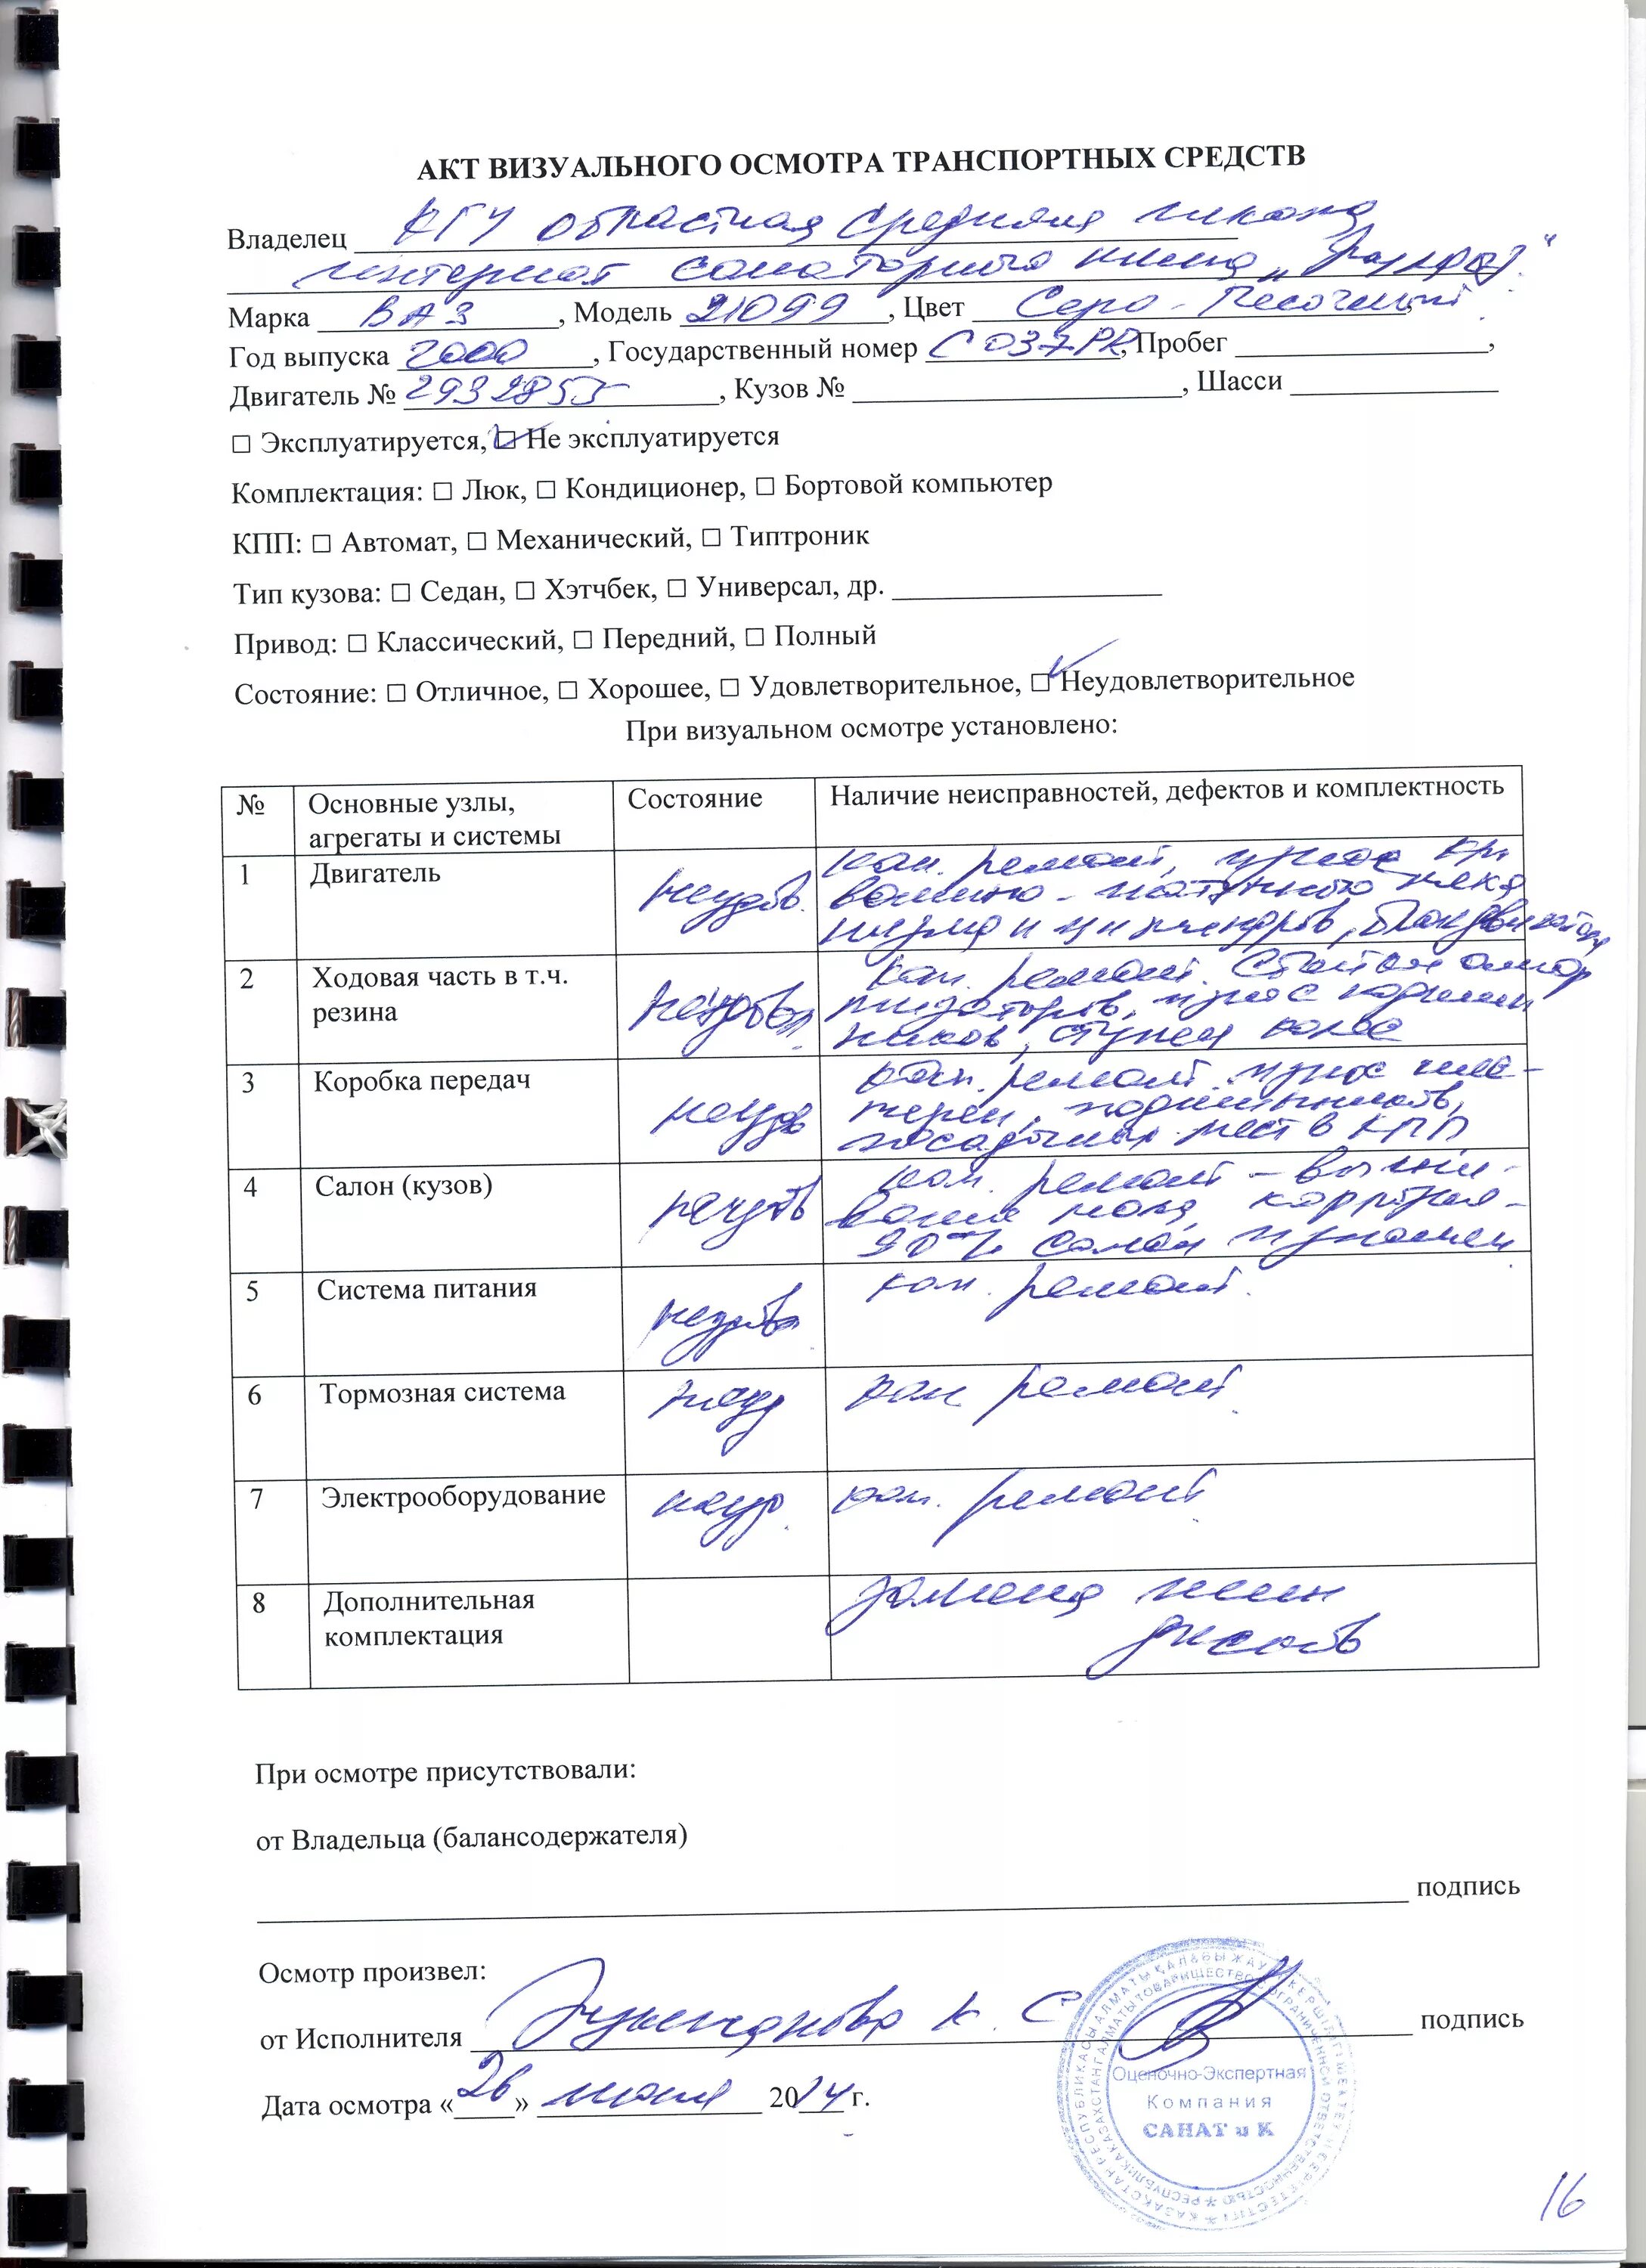 АКТ ВИЗУАЛЬНОГО ОСМОТРА ТРАНСПОРТНЫХ СРЕДСТВ
Владелец КГУ Областная средняя школа
интернат санаторного типа „
Марка ВАЗ, Модель 21099, Цвет Серо - Песочный,
Год выпуска 2000, Государственный номер С 037 РR, Пробег ,
Двигатель № 2932855, Кузов № , Шасси
☐ Эксплуатируется, ☑ Не эксплуатируется
Комплектация: ☐ Люк, ☐ Кондиционер, ☐ Бортовой компьютер
КПП: ☐ Автомат, ☐ Механический, ☐ Типтроник
Тип кузова: ☐ Седан, ☐ Хэтчбек, ☐ Универсал, др.
Привод: ☐ Классический, ☐ Передний, ☐ Полный
Состояние: ☐ Отличное, ☐ Хорошее, ☐ Удовлетворительное, ☑ Неудовлетворительное
При визуальном осмотре установлено:
№ Основные узлы, агрегаты и системы Состояние Наличие неисправностей, дефектов и комплектность
1 Двигатель неудов. кап. ремонт, износ кри
вошипно - шатунного меха
низма и цилиндров, блок двигателя
2 Ходовая часть в т.ч. резина неудов. кап. ремонт. Стойки аморт
тизаторов, износ подшип
ников, ступеи колес
3 Коробка передач неудов кап. ремонт. износ шес-
терен, подшипников,
посадочных мест в КПП
4 Салон (кузов) неудов кап. ремонт -
вание пола, коррозия -
90% салон изношен
5 Система питания неудов кап. ремонт.
6 Тормозная система неуд кап ремонт.
7 Электрооборудование неуд. кап. ремонт
8 Дополнительная комплектация замена шин
дисков
При осмотре присутствовали:
от Владельца (балансодержателя)
подпись
Осмотр произвел:
от Исполнителя К. С. подпись
Дата осмотра «26» июня 2014 г.
Оценочно-Экспертная
Компания
САНАТ и К
16